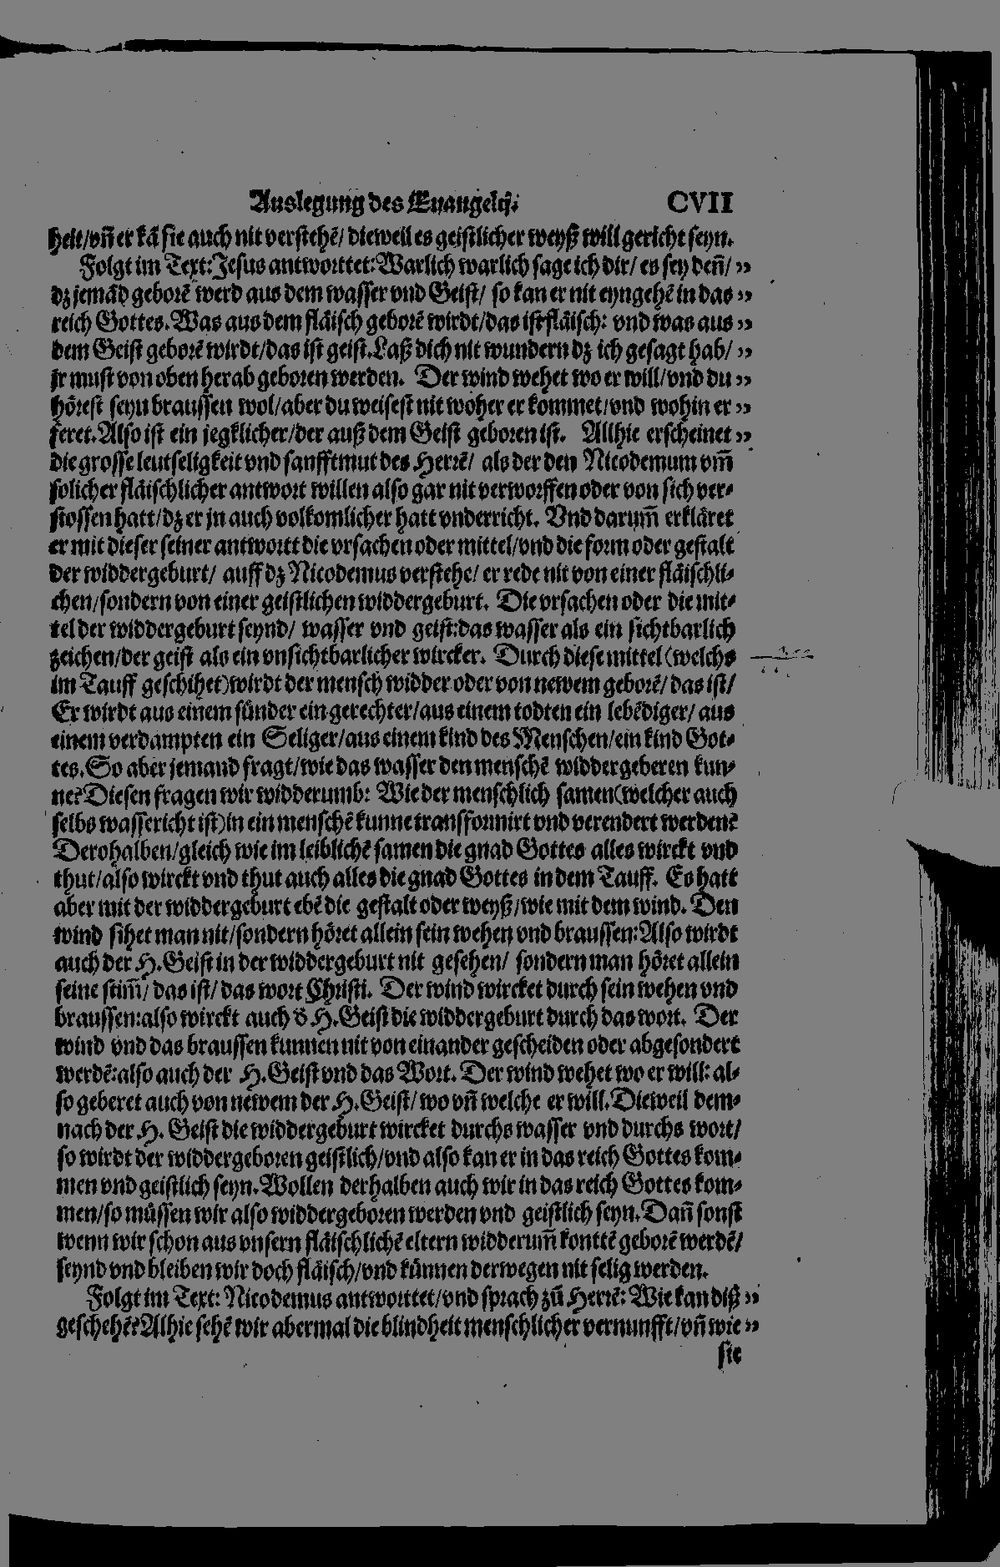 Auslegung des Euangelij. CVII
heit/vñ er kã sie auch nit verstehẽ/ dieweil es geistlicher weyß will gericht seyn.
Folgt im Text: Jesus antworttet: Warlich warlich sage ich dir/ es sey deñ/ „
dz jemãd geborẽ werd aus dem wasser vnd Geist/ so kan er nit eyngehẽ in das „
reich Gottes. Was aus dem fläisch geborẽ wirdt/das ist fläisch: vnd was aus „
dem Geist geborẽ wirdt/das ist geist. Laß dich nit wundern dz ich gesagt hab/ „
jr must von oben herab geboren werden. Der wind wehet wo er will/vnd du „
hörest seyn braussen wol/aber du weisest nit woher er kommet/vnd wohin er „
feret. Also ist ein jegklicher/der auß dem Geist geboren ist. Allhie erscheinet „
die grosse leutseligkeit vnd sanfftmut des Herrẽ/ als der den Nicodemum vm̃
solicher fläischlicher antwort willen also gar nit verworffen oder von sich ver-
stossen hatt/dz er jn auch volkomlicher hatt vnderricht. Vnd darum̃ erkläret
er mit dieser seiner antwortt die vrsachen oder mittel/vnd die form oder gestalt
der widdergeburt/ auff dz Nicodemus verstehe/ er rede nit von einer fläischli-
chen/sondern von einer geistlichen widdergeburt. Die vrsachen oder die mit-
tel der widdergeburt seynd/ wasser vnd geist: das wasser als ein sichtbarlich
zeichen/der geist als ein vnsichtbarlicher wircker. Durch diese mittel (welchs
im Tauff geschihet) wirdt der mensch widder oder von newem geborẽ/ das ist/
Er wirdt aus einem sünder ein gerechter/aus einem todten ein lebẽdiger/ aus
einem verdampten ein Seliger/aus einem kind des Menschen/ein kind Got-
tes. So aber jemand fragt/wie das wasser den menschẽ widdergeberen kun-
ne? Diesen fragen wir widderumb: Wie der menschlich samen (welcher auch
selbs wassericht ist) in ein menschẽ kunne transformirt vnd verendert werden?
Derohalben/gleich wie im leiblichẽ samen die gnad Gottes alles wirckt vnd
thut/also wirckt vnd thut auch alles die gnad Gottes in dem Tauff. Es hatt
aber mit der widdergeburt ebẽ die gestalt oder weyß/wie mit dem wind. Den
wind sihet man nit/sondern höret allein sein wehen vnd braussen: Also wirdt
auch der H. Geist in der widdergeburt nit gesehen/ sondern man höret allein
seine stim̃/ das ist/ das wort Christi. Der wind wircket durch sein wehen vnd
braussen: also wirckt auch d̕ H. Geist die widdergeburt durch das wort. Der
wind vnd das braussen kunnen nit von einander gescheiden oder abgesondert
werdẽ: also auch der H. Geist vnd das Wort. Der wind wehet wo er will: al-
so geberet auch von newem der H. Geist/ wo vñ welche er will. Dieweil dem-
nach der H. Geist die widdergeburt wircket durchs wasser vnd durchs wort/
so wirdt der widdergeboren geistlich/vnd also kan er in das reich Gottes kom-
men vnd geistlich seyn. Wollen derhalben auch wir in das reich Gottes kom-
men/so müssen wir also widdergeboren werden vnd geistlich seyn. Dañ sonst
wenn wir schon aus vnsern fläischlichẽ eltern widderum̃ konttẽ geborẽ werdẽ/
seynd vnd bleiben wir doch fläisch/vnd künnen derwegen nit selig werden.
Folgt im Text: Nicodemus antworttet/vnd sprach zů Herrẽ: Wie kan diß „
geschehẽ? Alhie sehẽ wir abermal die blindheit menschlicher vernunfft/vñ wie „
sie